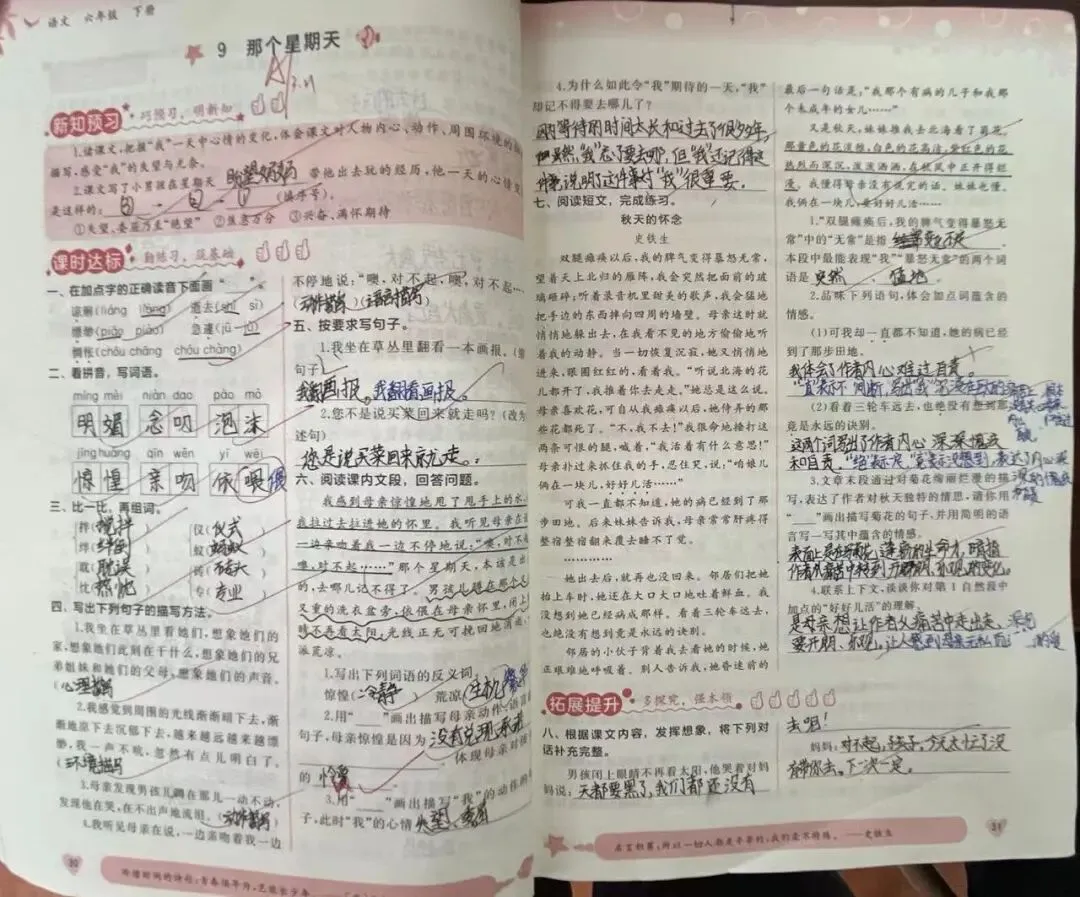 语文 六年级 下册
9 那个星期天
A
3.21
新知预习
巧预习,明新知
1.读课文,把握“我”一天中心情的变化,体会课文对人物内心、动作、周围环境的
描写,感受“我”的失望与无奈。
2.课文写了小男孩在星期天 盼望妈妈 带他出去玩的经历,他一天的心情
是这样的: ③ → ② → ① (编序号)。
①失望、委屈乃至“绝望” ②焦急万分 ③兴奋、满怀期待
课时达标
勤练习,筑基础
一、在加点字的正确读音下面画“____”。
谅解(liáng liàng) 逝去(shì sì)
缥缈(piāo piào) 急遽(jū jù)
惆怅(chóu chāng chóu chàng)
二、看拼音,写词语。
míng mèi niàn dao pào mò
明媚 念叨 泡沫
jīng huáng qīn wěn yī wēi
惊惶 亲吻 依偎
三、比一比,再组词。
拌(搅拌) 仪(仪式)
绊(绊倒) 蚁(蚂蚁)
耽(耽误) 砖
忱(热忱) 专(专业)
四、写出下列句子的描写方法。
1.我坐在草丛里看她们,想象她们的
家,想象她们此刻在干什么,想象她们的兄
弟姐妹和她们的父母,想象她们的声音。
(心理描写
2.我感觉到周围的光线渐渐暗下去,渐
渐地凉下去沉郁下去,越来越远越来越缥
缈,我一声不吭,忽然有点儿明白了。
(环境描写
3.母亲发现男孩儿蹲在那儿一动不动,
发现他在哭,在不出声地流泪。(动作描写)
4.我听见母亲在说,一边亲吻着我一边
30
不停地说:“噢,对不起,噢,对不起……
(动作描写)(语言描写)
五、按要求写句子。
1.我坐在草丛里翻看一本画报。(缩
句子)
我翻看画报。
2.您不是说买菜回来就走吗?(改为
述句)
您是说买菜回来就走。
六、阅读课内文段,回答问题。
我感到母亲惊惶地甩了甩手上的水,
我拉过去拉进她的怀里。我听见母亲在说
一边亲吻着我一边不停地说:“噢,对不
噢,对不起……”那个星期天,本该是出
的,去哪儿记不得了。男孩儿蹲在那个
又重的洗衣盆旁,依偎在母亲怀里,闭上
睛不再看太阳,光线正无可挽回地消逝,
派荒凉。
1.写出下列词语的反义词。
惊惶(冷静) 荒凉
2.用“____”画出描写母亲动作、语言
句子,母亲惊惶是因为 没有兑现承诺
,体现母亲对孩
的
3.用“____”画出描写“我”的动作的
子,此时“我”的心情 失望、委屈
4.为什么如此令“我”期待的一天,“我”
却记不得要去哪儿了?
因为等待的时间太长和过去了很多年,
虽然,“我”忘了要去哪,但“我”还记得这
件事,说明了这件事对“我”很重要。
七、阅读短文,完成练习。
秋天的怀念
史铁生
双腿瘫痪以后,我的脾气变得暴怒无常,
望着天上北归的雁阵,我会突然把面前的玻
璃砸碎;听着录音机里甜美的歌声,我会猛地
把手边的东西摔向四周的墙壁。母亲这时就
悄悄地躲出去,在我看不见的地方偷偷地听
着我的动静。当一切恢复沉寂,她又悄悄地
进来,眼圈红红的,看着我。“听说北海的花
儿都开了,我推着你去走走。”她总是这么说。
母亲喜欢花,可自从我瘫痪以后,她侍弄的那
些花都死了。“不,我不去!”我狠命地捶打这
两条可恨的腿,喊着,“我活着有什么意思!”
母亲扑过来抓住我的手,忍住哭,说:“咱娘儿
俩在一块儿,好好儿活……”
可我一直都不知道,她的病已经到了那
步田地。后来妹妹告诉我,母亲常常肝疼得
整宿整宿翻来覆去睡不了觉。
…………
她出去后,就再也没回来。邻居们把她
抬上车时,她还在大口大口地吐着鲜血。我
没想到她已经病成那样。看着三轮车远去,
也绝没有想到竟是永远的诀别。
邻居的小伙子背着我去看她的时候,她
正艰难地呼吸着。别人告诉我,她昏迷前的
最后一句话是,“我那个有病的儿子和我那
个未成年的女儿……”
又是秋天,妹妹推我去北海看了菊花。
那黄色的花淡雅,白色的花高洁,紫红色的花
热烈而深沉,泼泼洒洒,在秋风中正开得烂
漫。我懂得母亲没有说完的话。妹妹也懂。
我俩在一块儿,要好好儿活……
1.“双腿瘫痪后,我的脾气变得暴怒无
常”中的“无常”是指 经常变化不定 。
本段中最能表现“我”“暴怒无常”的两个词
语是 突然 、 猛地 。
2.品味下列语句,体会加点词蕴含的
情感。
(1)可我却一直都不知道,她的病已经
到了那步田地。
我体会了作者内心难过自责。
(2)看着三轮车远去,也绝没有想到那
竟是永远的诀别。
这两个词写出了作者内心深深愧疚
和自责。
3.文章末段通过对菊花绚丽烂漫的描
写,表达了作者对秋天独特的情思,请你用
“____”画出描写菊花的句子,并用简明的语
言写一写其中蕴含的情感。
4.联系上下文,谈谈你对第1自然段中
加点的“好好儿活”的理解。
是母亲想让作者从痛苦中走出走,
要开朗、乐观,
拓展提升
多探究,强本领
八、根据课文内容,发挥想象,将下列对
话补充完整。
男孩闭上眼睛不再看太阳,他哭着对妈
妈说: 天都要黑了,我们都还没有
去咱!
妈妈: 对不起,孩子,今天太忙了没
有带你去。下一次一定。
31
名言积累:所以一切人都是平等的,我们是不特殊。 ——史铁生